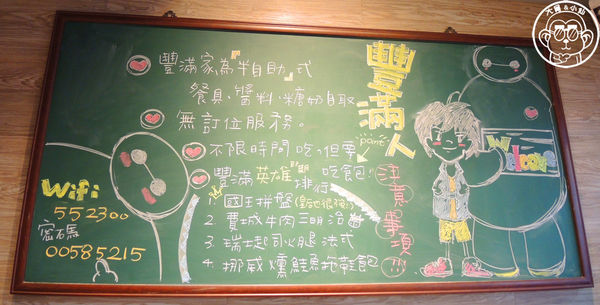 大腸&小蚓
豐滿人
point
注意事項!!!
豐滿家為"半自助"式
餐具、醬料、糖奶自取
無訂位服務。
不限時間吃,但要吃飽!
豐滿英雄"排行
1. 國王拼盤
2. 費城牛肉三明治
3. 瑞士起司火腿法式
4. 挪威燻鮭魚拖鞋飽
Welcome
Wifi
552300
密碼
00585215